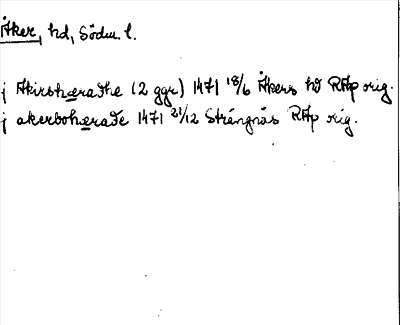 Åker, hd, Södm. l.
j Akirshæradhe (2 ggr) 1471 18/6 Åkers hd RAp orig.
j akerbohærade 1471 21/12 Strängnäs RAp orig.